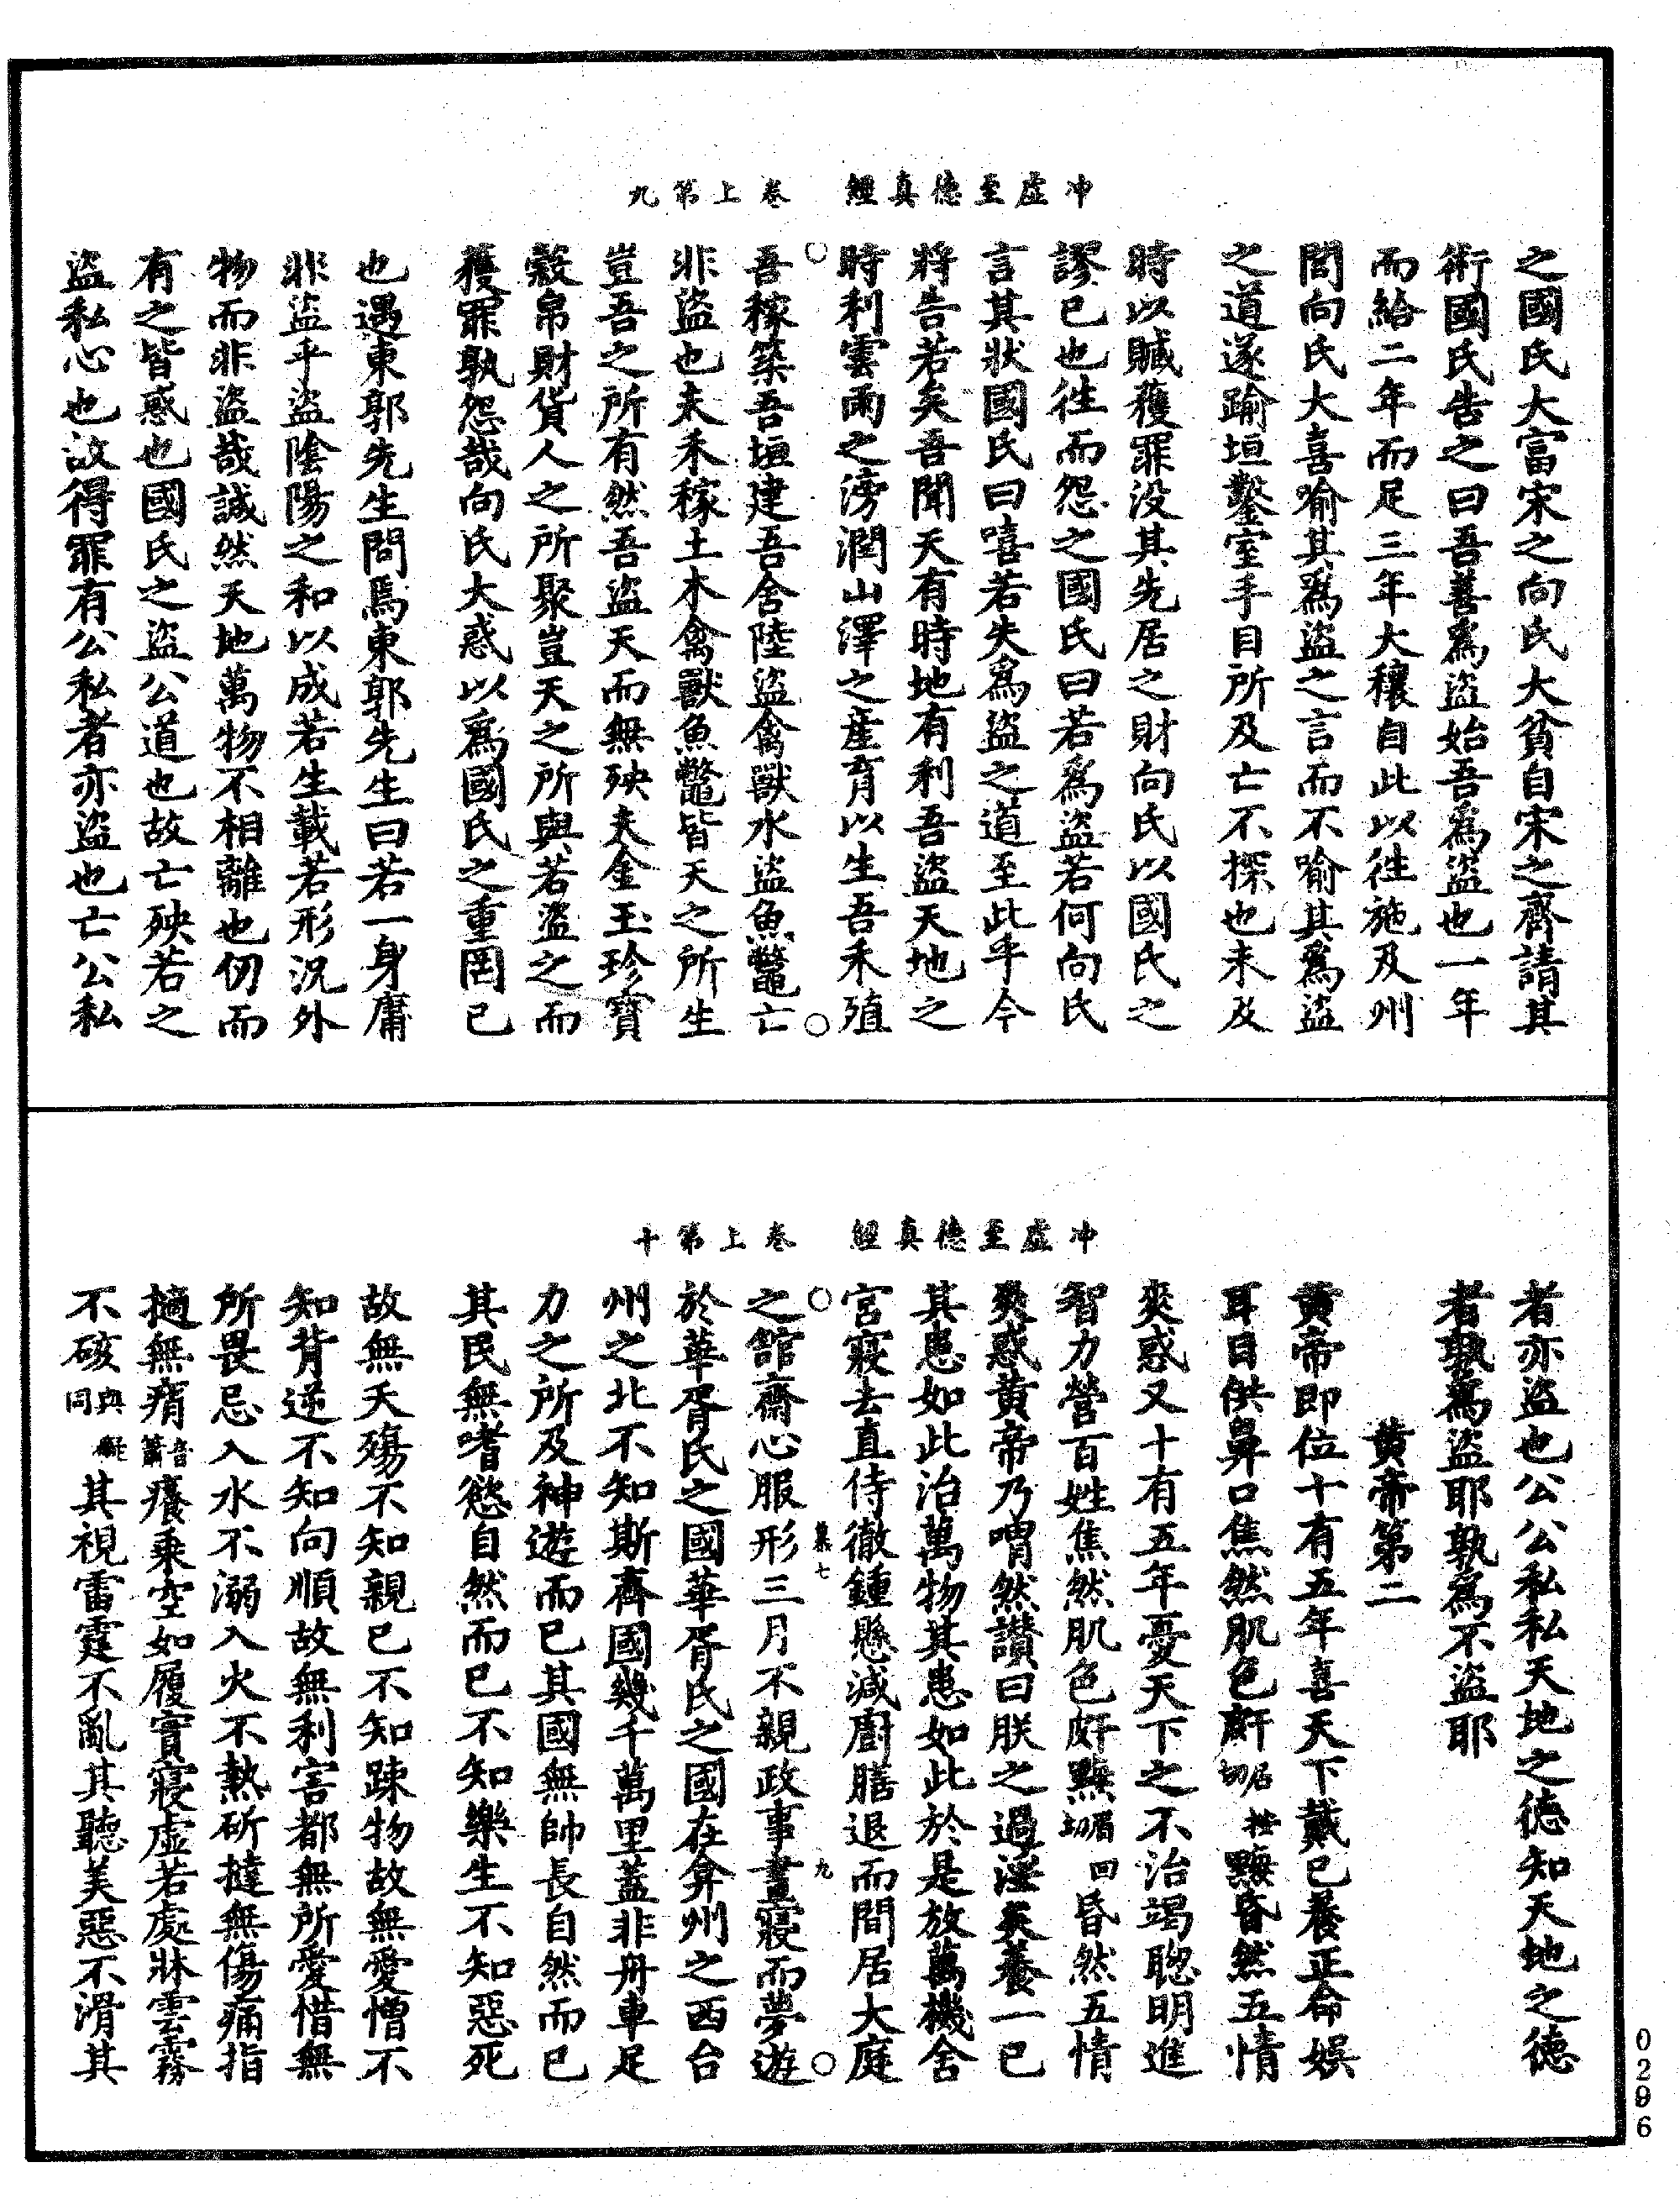 冲虛至德真經　卷上第九
之國氏大富宋之向氏大貧自宋之齊請其
術國氏告之曰吾善爲盜始吾爲盜也一年
而給二年而足三年大穰自此以往施及州
閭向氏大喜喻其爲盜之言而不喻其爲盜
之道遂踰垣鑿室手目所及亡不探也未及
時以贓獲罪没其先居之財向氏以國氏之
謬已也往而怨之國氏曰若爲盜若何向氏
言其狀國氏曰嘻若失爲盜之道至此乎今
將告若矣吾聞天有時地有利吾盜天地之
時利雲雨之滂潤山澤之産育以生吾禾殖
吾稼築吾垣建吾舍陸盜禽獸水盜魚鼈亡
非盜也夫禾稼土木禽獸魚鼈皆天之所生
豈吾之所有然吾盜天而無殃夫金玉珍寶
穀帛財貨人之所聚豈天之所與若盜之而
獲罪孰怨哉向氏大惑以爲國氏之重罔已
也遇東郭先生問焉東郭先生曰若一身庸
非盜乎盜陰陽之和以成若生載若形況外
物而非盜哉誠然天地萬物不相離也仞而
有之皆惑也國氏之盜公道也故亡殃若之
盜私心也故得罪有公私者亦盜也亡公私
冲虛至德真經　卷上第十
者亦盜也公公私私天地之德知天地之德
者孰爲盜耶孰爲不盜耶
黃帝第二
黃帝即位十有五年喜天下戴已養正命娛
耳目供鼻口焦然肌色皯居旱切黣昏然五情
爽惑又十有五年憂天下之不治竭聰明進
智力營百姓焦然肌色皯黣眉回切昏然五情
爽惑黃帝乃喟然讚曰朕之過淫矣養一已
其患如此治萬物其患如此於是放萬機舍
宮寢去直侍徹鍾懸減廚膳退而間居大庭
之館齋心服形三月不親政事晝寢而夢遊
於華胥氏之國華胥氏之國在弇州之西台
州之北不知斯齊國幾千萬里蓋非舟車足
力之所及神遊而已其國無帥長自然而已
其民無嗜慾自然而已不知樂生不知惡死
故無夭殤不知親已不知踈物故無愛憎不
知背逆不知向順故無利害都無所愛惜無
所畏忌入水不溺入火不熱斫撻無傷痛指
擿無痟音蕭癢乘空如履實寢虛若處牀雲霧
不硋與礙同其視雷霆不亂其聽美惡不滑其
0296